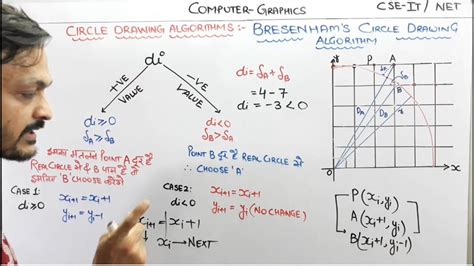 COMPUTER-GRAPHICS
CSE-IT/ NET
CIRCLE DRAWING ALGORITHMS:- BRESENHAM'S CIRCLE DRAWING
ALGORITHM
di
+VE
VALUE
-VE
VALUE
di = δA + δB
= 4 - 7
di = -3 < 0
di ≥ 0
δA ≥ δB
di < 0
δB > δA
POINT A दूर है
REAL CIRCLE से & B पास है
इसलिए 'B' CHOOSE करेंगे
POINT B दूर है REAL CIRCLE से
∴ CHOOSE 'A'
CASE 1:
di ≥ 0
xi+1 = xi+1
yi+1 = yi-1
CASE 2:
di < 0
xi+1 = xi+1
yi+1 = yi (NO CHANGE)
xi+1 = xi+1
xi → NEXT
P A
δA
B
DA
DB
X
P(xi, yi)
A(xi+1, yi)
B(xi+1, yi-1)